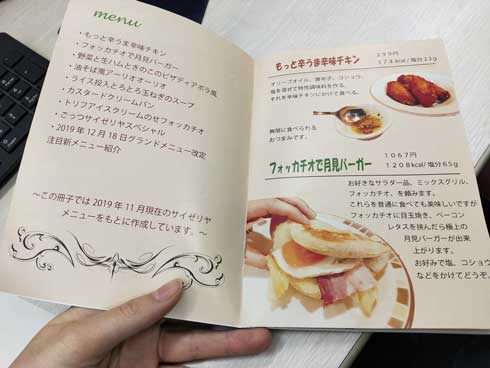 menu
・もっと辛うま辛味チキン
・フォッカチオで月見バーガー
・野菜と生ハムときのこのピザディアボラ風
・油そば風アーリオオーリオ
・ライス投入とろとろ玉ねぎのスープ
・カスタードクリームパン
・トリフアイスクリームのせフォカッチオ
・ごっつサイゼリヤスペシャル
・2019年12月18日グランドメニュー改定
注目新メニュー紹介
～この冊子では2019年11月現在のサイゼリヤ
メニューをもとに作成しています。～
もっと辛うま辛味チキン
299円
374kcal/塩分2.3g
オリーブオイル、唐辛子、コショウ、
塩を混ぜて特性調味料を作る。
それを辛味チキンにかけて食べる。
無限に食べられる
おつまみです。
フォッカチオで月見バーガー
1067円
1208kcal/塩分6.5g
お好きなサラダ一品、ミックスグリル、
フォカッチオ、を頼みます。
これらを普通に食べても美味しいですが
フォカッチオに目玉焼き、ベーコン
レタスを挟んだら極上の
月見バーガーが出来
上がります。
お好みで塩、コショウ
などをかけてどうぞ。